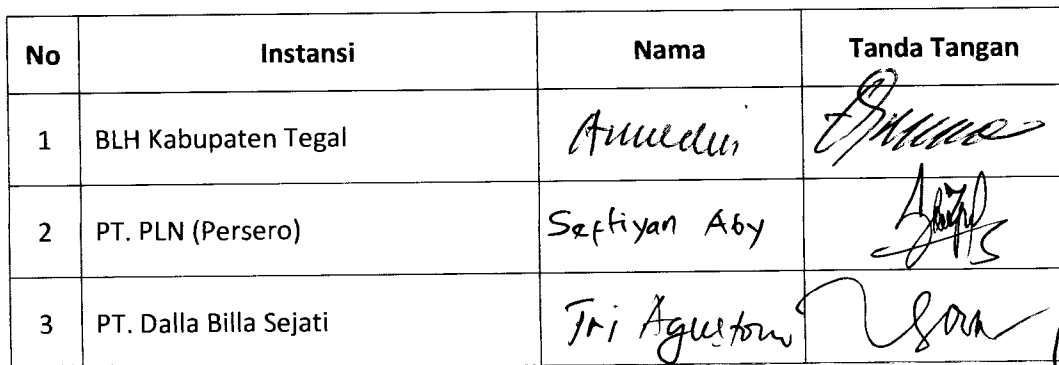 No Instansi Nama Tanda Tangan
1 BLH Kabupaten Tegal
2 PT. PLN (Persero) Septiyan Aby
3 PT. Dalla Billa Sejati Tri Agustono